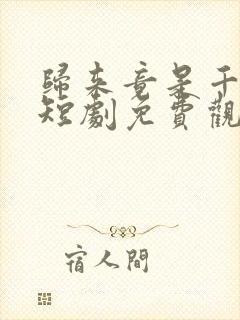 歸來竟是千
短劇免費觀
宿人間